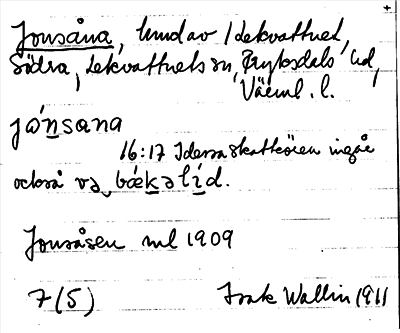 Jonsåna, hmd av / Lekvattnet,
Södra, Lekvattnets sn, Fryksdals hd,
Värml. l.
jớnsana
16:17 I dessa skattören ingår
också və bǽkəlíd.
Jonsåsen ml 1909
7 (5) Isak Wallin 1911